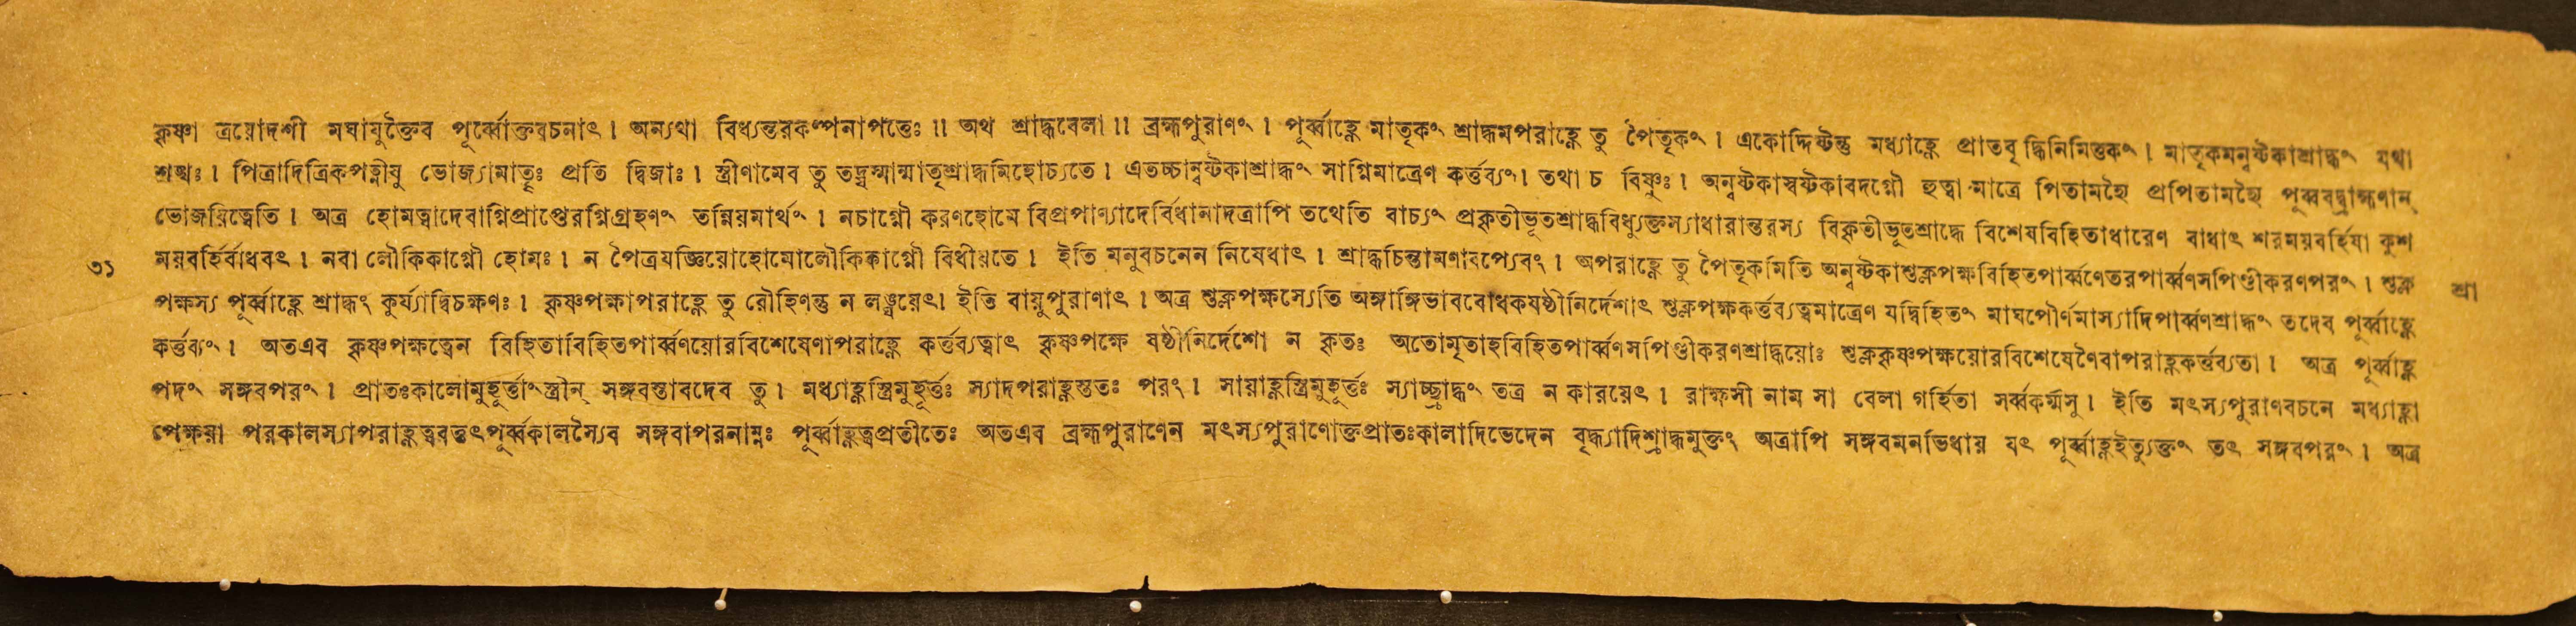 কৃষ্ণা ত্রয়োদশী মঘাযুক্তৈব পূর্ব্বোক্তবচনাৎ। অন্যথা বিধ্যন্তরকল্পনাপত্তেঃ॥ অথ শ্রাদ্ধবেলা॥ ব্রহ্মপুরাণং। পূর্ব্বাহ্ণে মাতৃকং শ্রাদ্ধমপরাহ্ণে তু পৈতৃকং। একোদ্দিষ্টন্তু মধ্যাহ্ণে প্রাতবৃদ্ধিনিমিত্তকং। মাতৃকমন্বষ্টকাশ্রাদ্ধং যথা
শঙ্খঃ। পিত্রাদিত্রিকপত্নীষু ভোজ্যামাতৄঃ প্রতি দ্বিজাঃ। স্ত্রীণামেব তু তদ্যস্মান্মাতৃশ্রাদ্ধমিহোচ্যতে। এতচ্চান্বষ্টকাশ্রাদ্ধং সাগ্নিমাত্রেণ কর্ত্তব্যং। তথা চ বিষ্ণুঃ। অন্বষ্টকাস্বষ্টকাবদগ্নৌ হুত্বা মাত্রে পিতামহ্যৈ প্রপিতামহ্যৈ পূর্ব্ববদ্ব্রাহ্মণান্
ভোজয়িত্বেতি। অত্র হোমত্বাদেবাগ্নিপ্রাপ্তেরগ্নিগ্রহণং তন্নিয়মার্থং। নচাগ্নৌ করণহোমে বিপ্রপাণ্যাদের্বিধানাদত্রাপি তথেতি বাচ্যং প্রকৃতীভূতশ্রাদ্ধবিধ্যুক্তস্যাধারান্তরস্য বিকৃতীভূতশ্রাদ্ধে বিশেষবিহিতাধারেণ বাধাৎ শরময়বর্হিষা কুশ
৩১ ময়বর্হির্বাধবৎ। নবা লৌকিকাগ্নৌ হোমঃ। ন পৈত্রযজ্ঞিয়োহোমোলৌকিকাগ্নৌ বিধীয়তে। ইতি মনুবচনেন নিষেধাৎ। শ্রাদ্ধচিন্তামণাবপ্যেবং। অপরাহ্ণে তু পৈতৃকমিতি অন্বষ্টকাশুক্লপক্ষবিহিতপার্ব্বণেতরপার্ব্বণসপিণ্ডীকরণপরং। শুক্ল শ্রা
পক্ষস্য পূর্ব্বাহ্ণে শ্রাদ্ধং কুর্য্যাদ্বিচক্ষণঃ। কৃষ্ণপক্ষাপরাহ্ণে তু রৌহিণন্তু ন লঙ্ঘয়েৎ। ইতি বায়ুপুরাণাৎ। অত্র শুক্লপক্ষস্যেতি অঙ্গাঙ্গিভাববোধকষষ্ঠীনির্দেশাৎ শুক্লপক্ষকর্ত্তব্যত্বমাত্রেণ যদ্বিহিতং মাঘপৌর্ণমাস্যাদিপার্ব্বণশ্রাদ্ধং তদেব পূর্ব্বাহ্ণে
কর্ত্তব্যং। অতএব কৃষ্ণপক্ষত্বেন বিহিতাবিহিতপার্ব্বণয়োরবিশেষেণাপরাহ্ণে কর্ত্তব্যত্বাৎ কৃষ্ণপক্ষে ষষ্ঠীনির্দেশো ন কৃতঃ অতোমৃতাহবিহিতপার্ব্বণসপিণ্ডীকরণশ্রাদ্ধয়োঃ শুক্লকৃষ্ণপক্ষয়োরবিশেষেণৈবাপরাহ্ণকর্ত্তব্যতা। অত্র পূর্ব্বাহ্ণ
পদং সঙ্গবপরং। প্রাতঃকালোমুহূর্ত্তাংস্ত্রীন্ সঙ্গবস্তাবদেব তু। মধ্যাহ্ণস্ত্রিমুহূর্ত্তঃ স্যাদপরাহ্ণস্ততঃ পরং। সায়াহ্ণস্ত্রিমুহূর্ত্তঃ স্যাচ্ছ্রাদ্ধং তত্র ন কারয়েৎ। রাক্ষসী নাম সা বেলা গর্হিতা সর্ব্বকর্ম্মসু। ইতি মৎস্যপুরাণবচনে মধ্যাহ্ণা
পেক্ষয়া পরকালস্যাপরাহ্ণত্ববত্তৎপূর্ব্বকালস্যৈব সঙ্গবাপরনাম্নঃ পূর্ব্বাহ্ণত্বপ্রতীতেঃ অতএব ব্রহ্মপুরাণেন মৎস্যপুরাণোক্তপ্রাতঃকালাদিভেদেন বৃদ্ধ্যাদিশ্রাদ্ধমুক্তং অত্রাপি সঙ্গবমনভিধায় যৎ পূর্ব্বাহ্ণইত্যুক্তং তৎ সঙ্গবপরং। অত্র